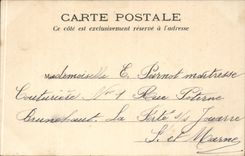 CARTE POSTALE
Ce côté est exclusivement réservé à l'adresse
Mademoiselle E. Pernot maitresse
Couturière N° 1 Rue Poterne
La Ferté s/s Jouarre
S. et Marne